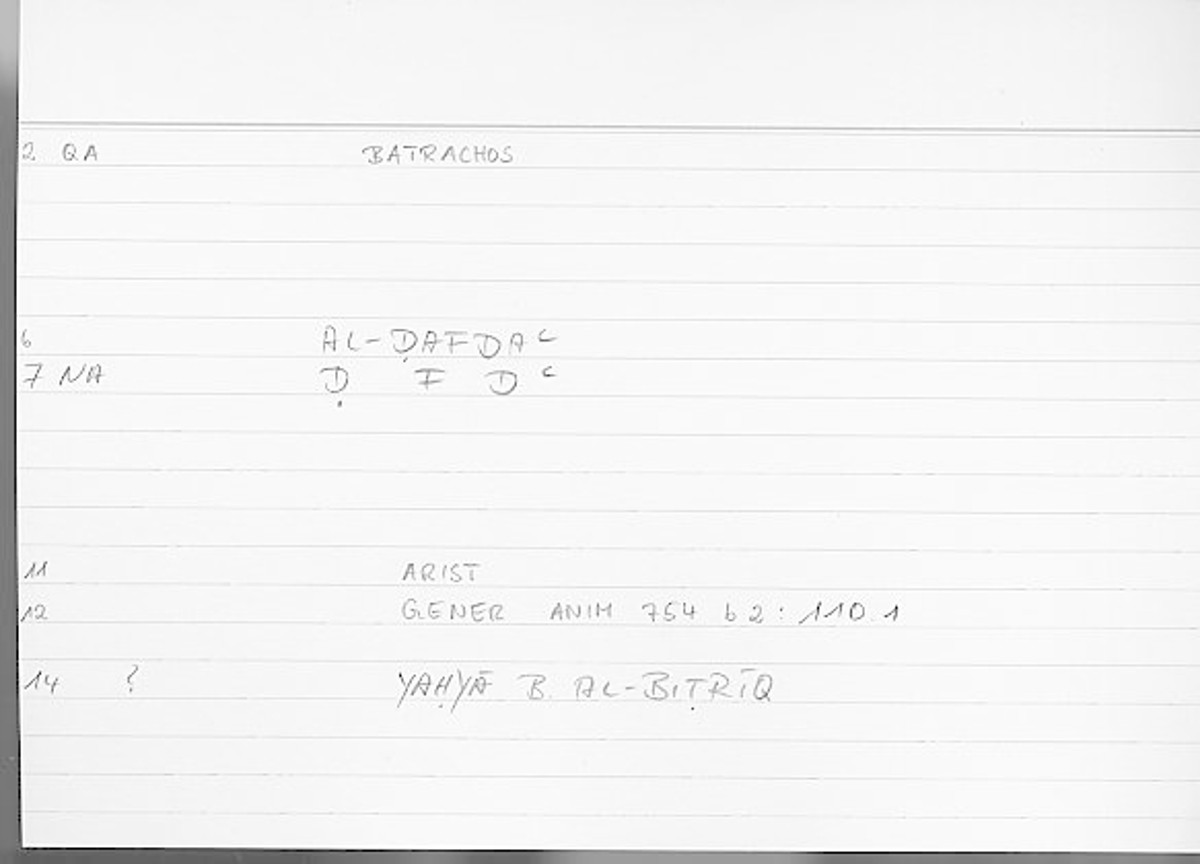 2 QA BATRACHOS
6 AL-ḌAFDAʿ
7 NA Ḍ F D ʿ
11 ARIST
12 GENER ANIM 754 b 2 : 110.1
14 ? YAḤYĀ B. AL-BIṬRĪQ